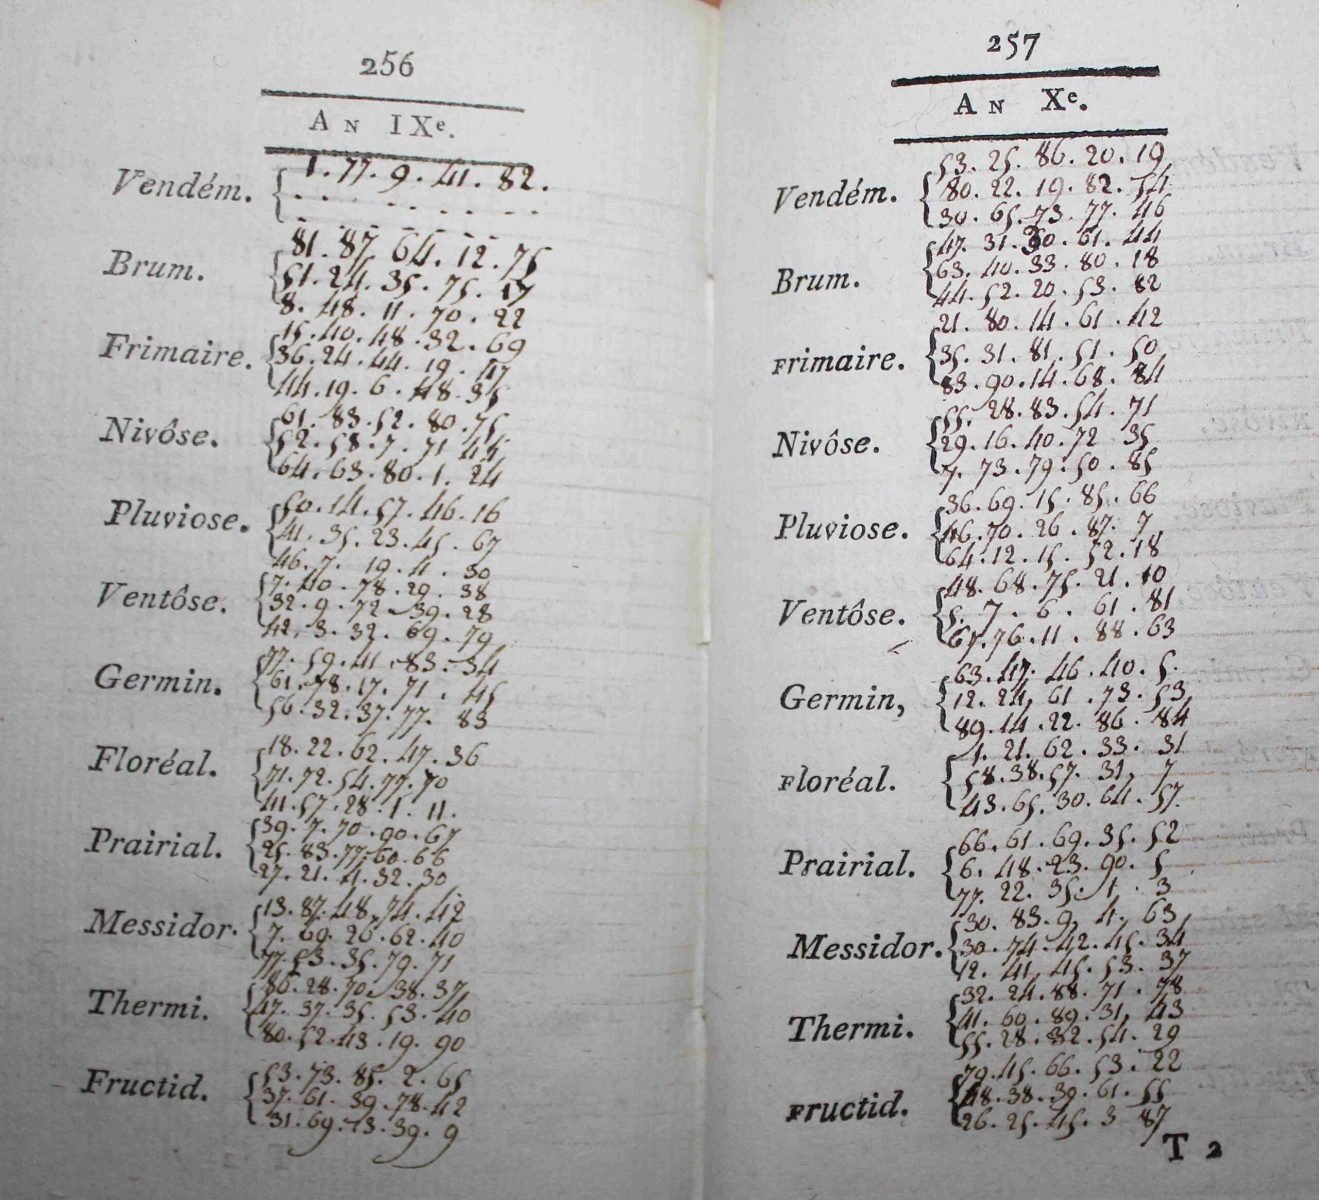 256
AN IXe.
Vendém. 1. 77. 9. 41. 82.
Brum. 81. 87 64. 12. 75
51. 24. 35. 75. 17
8. 48. 11. 70. 22
Frimaire. 15. 40. 48. 32. 69
36. 24. 44. 19. 47
44. 19. 6. 48. 35
Nivôse. 61. 83. 52. 80. 75
52. 58. 7. 71 44
64. 63. 80. 1. 24
Pluviose. 50. 14. 57. 46. 16
41. 35. 23. 45. 67
46. 7. 19. 4. 30
Ventôse. 7. 40. 78. 29. 38
32. 9. 72. 39. 28
42. 3. 32. 69. 79
Germin. 77. 59. 41. 83. 34
61. 78. 17. 71. 45
56. 32. 37. 77. 83
Floréal. 18. 22. 62. 47. 36
71. 72. 54. 77. 70
41. 57. 28. 1. 11.
Prairial. 39. 7. 70. 90. 67
25. 83. 77. 60. 66
27. 21. 4. 32. 30
Messidor. 13. 87. 48. 74. 42
7. 69. 26. 62. 40
77. 53. 35. 79. 71
Thermi. 86. 28. 70. 38. 37
47. 37. 35. 53. 40
80. 52. 43. 19. 90
Fructid. 53. 73. 85. 2. 65
37. 61. 39. 78. 42
31. 69. 13. 39. 9
257
AN Xe.
Vendém. 53. 25. 86. 20. 19
80. 22. 19. 82. 54
30. 65. 73. 77. 46
Brum. 47. 31. 30. 61. 44
63. 40. 33. 80. 18
44. 52. 20. 53. 82
Frimaire. 21. 80. 14. 61. 42
35. 31. 81. 51. 50
83. 90. 14. 68. 84
Nivôse. 55. 28. 83. 54. 71
29. 16. 40. 72. 35
7. 73. 79. 50. 85
Pluviose. 36. 69. 15. 85. 66
46. 70. 26. 87. 7
64. 12. 15. 52. 18
Ventôse. 48. 68. 75. 21. 10
5. 7. 6. 61. 81
67. 76. 11. 88. 63
Germin, 63. 47. 46. 40. 5.
12. 24. 61. 73. 53
89. 14. 22. 86. 84
Floréal. 1. 21. 62. 33. 31
58. 38. 57. 31. 7
43. 65. 30. 64. 57
Prairial. 66. 61. 69. 35. 52
6. 48. 23. 90. 5
77. 22. 35. 1. 3
Messidor. 30. 83. 9. 4. 63
30. 74. 42. 45. 34
12. 41. 45. 53. 37
Thermi. 32. 24. 88. 71. 78
41. 60. 89. 31. 43
55. 28. 82. 54. 29
Fructid. 79. 45. 66. 53. 22
48. 38. 39. 61. 55
26. 25. 45. 3 87
T 2